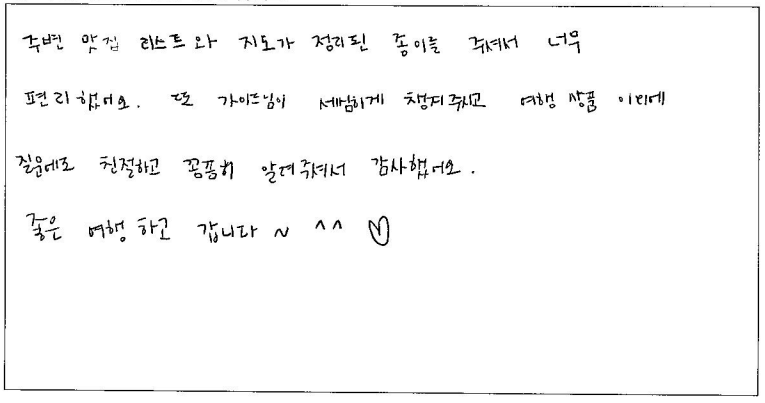 주변 맛집 리스트와 지도가 정리된 종이를 주셔서 너무
편리했어요. 또 가이드님이 세심하게 챙겨주시고 여행 상품 이외에
질문에도 친절하고 꼼꼼히 알려주셔서 감사했어요.
좋은 여행하고 갑니다 ~ ^^ ♡